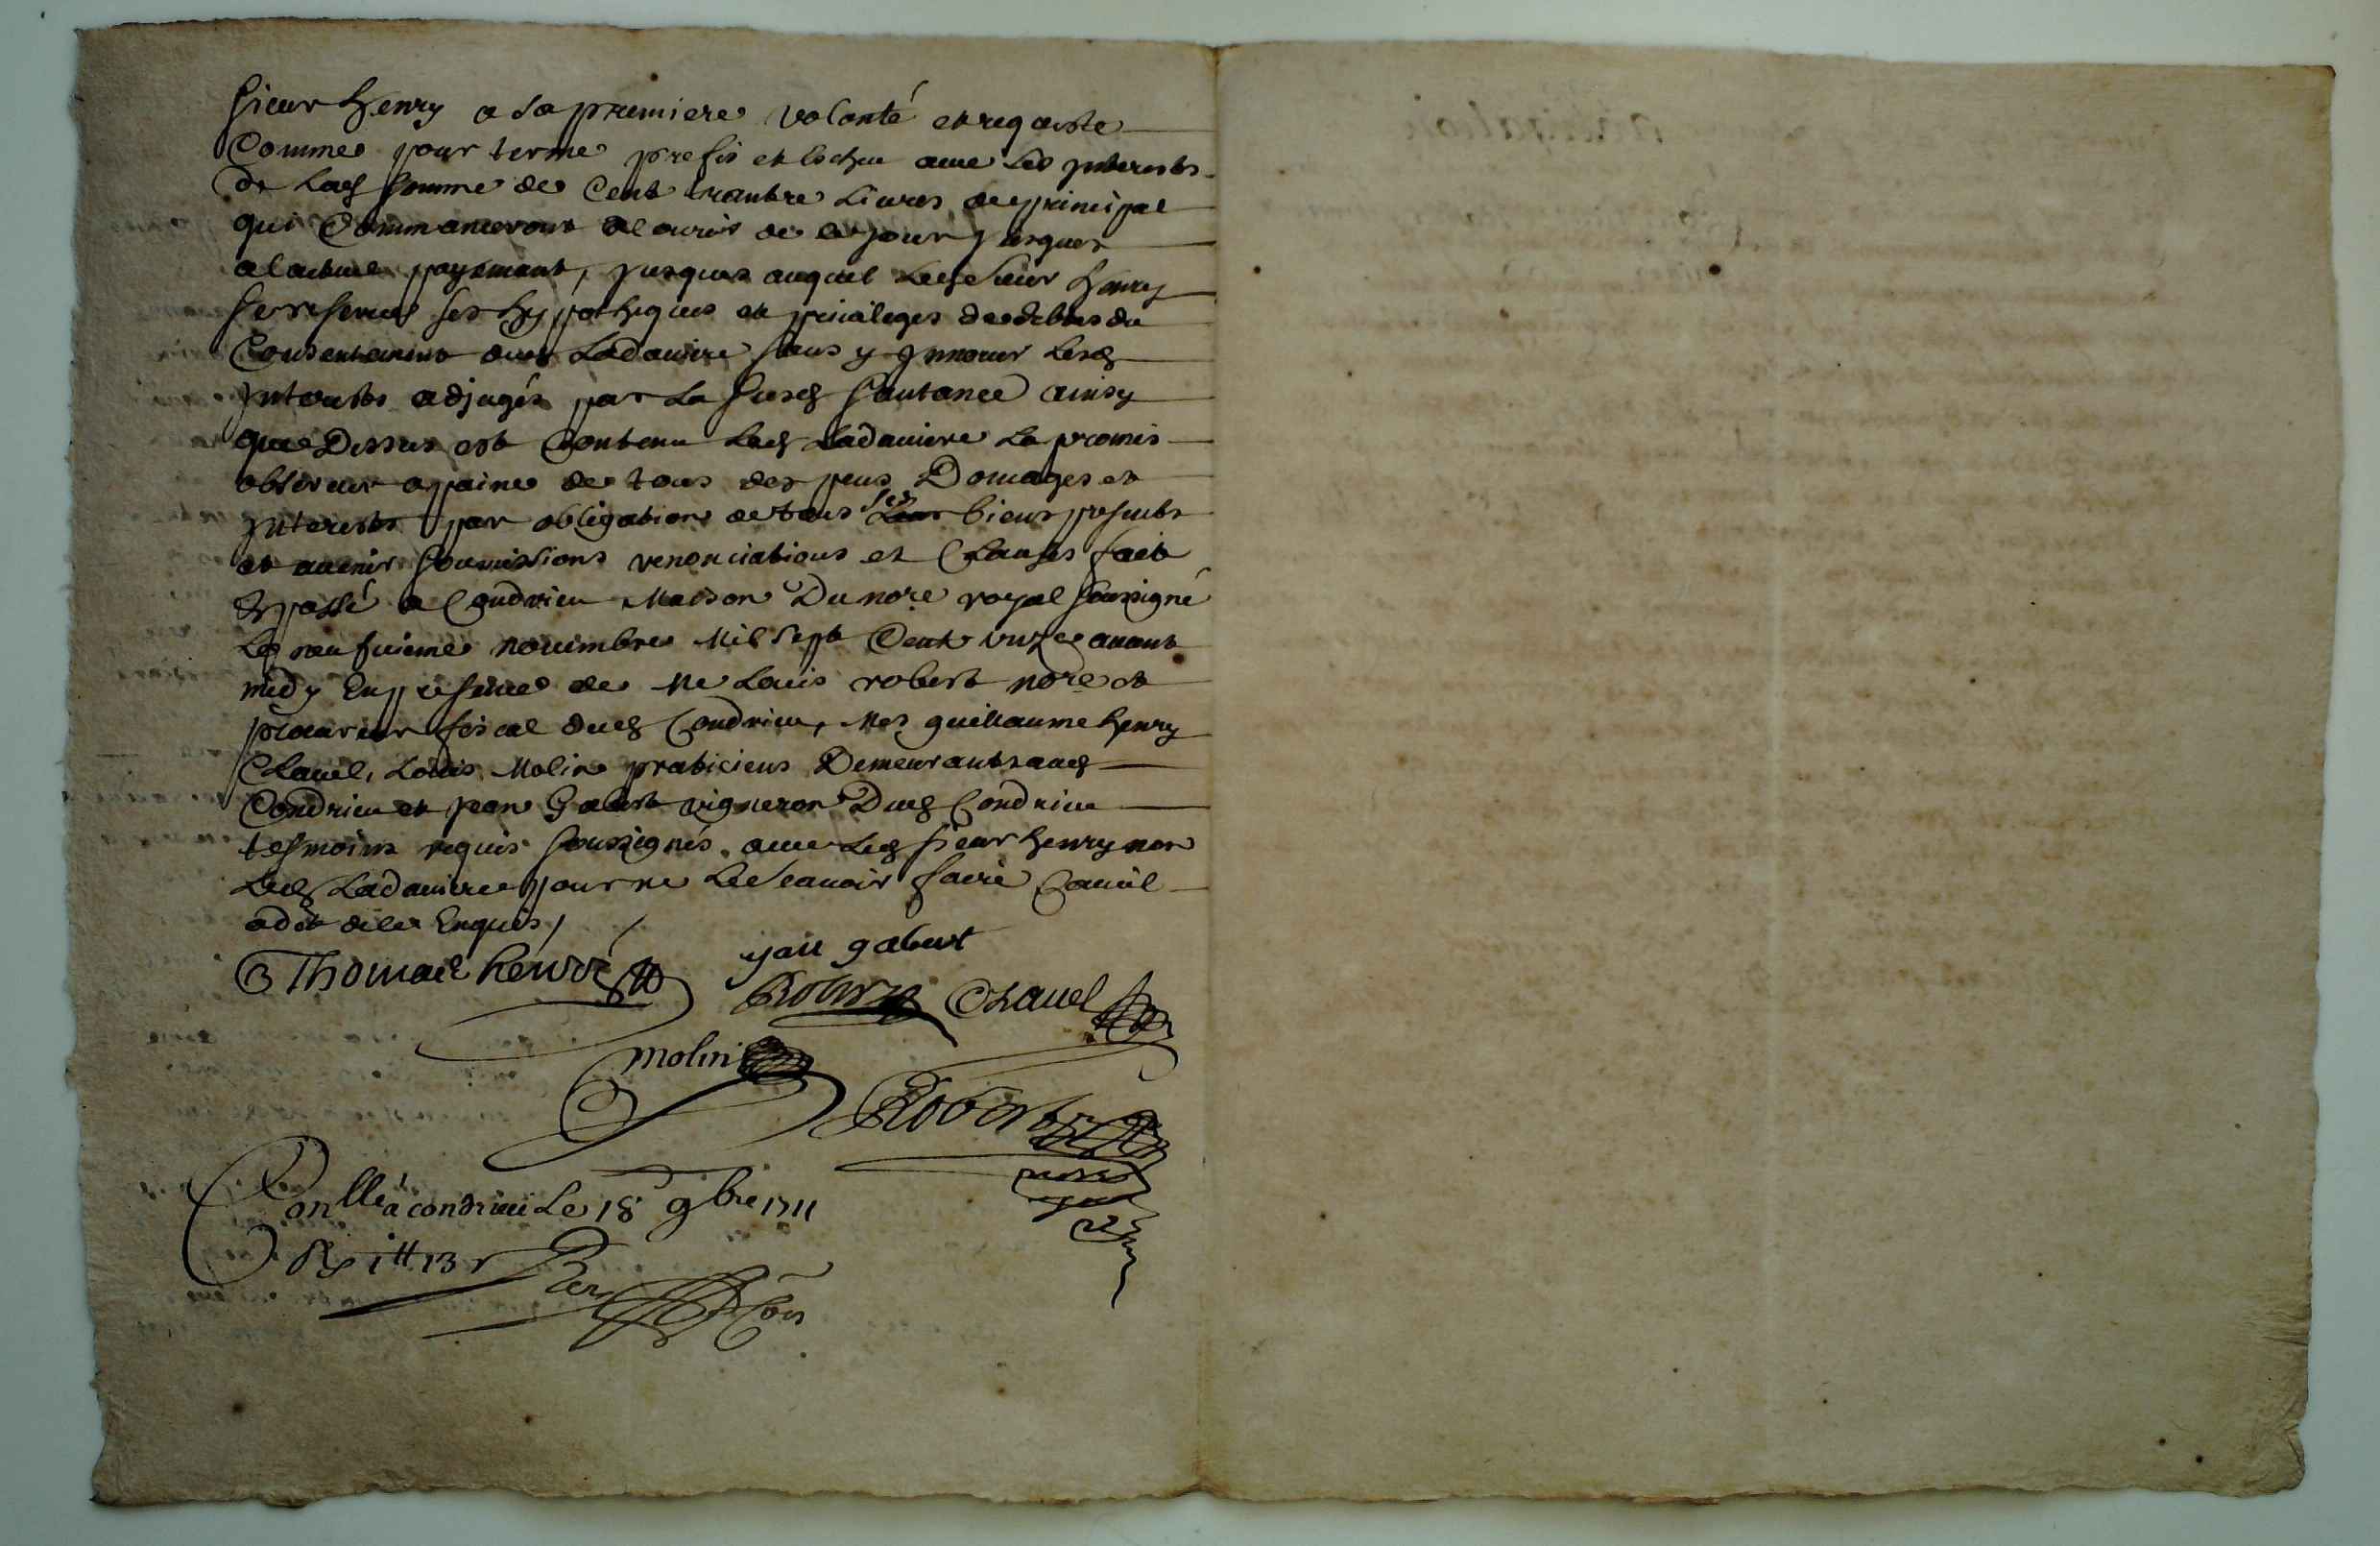 sieur henry a sa premiere volonté et requiste
Comme pour terme prefis et escheu avec les Interests
de lad somme de Cent trante Livres de principal
qui Commanceront a courir de ce jour Jusques
a lactuel payement, Jusques auquel led sieur henry
se reserve ses hypotheques et privileges desd debtes du
Consentement dud Ladaviere sans y Innover lesd
Interests adjugés par la susd santance ainsy
que Dessus est Contenu led Ladaviere la promis
observer a paine de tous despens Domages et
Interests par obligation de tous ses biens presents
et avenir soumissions renonciations et Clauses fait
et passé a Condrieu Maison Du nore royal soussigné
Le neufvieme novembre Mil sept Cent unze avant
midy En presence de Me Louis robert nore et
procureur fiscal dud Condrieu, Mes guillaume henry
Clavel, Louis Molin praticiens Demeurants aud
Condrieu et jean Gabert vigneron Dud Condrieu
tesmoins requis soussignés avec led sieur henry non
Led Ladaviere pour ne le scavoir faire Comil
a dit de ce Enquis,
Thomas henry
jan gabert
Robert Chavel
molin
Robert
Conllé a condrieu Le 18e 9bre 1711